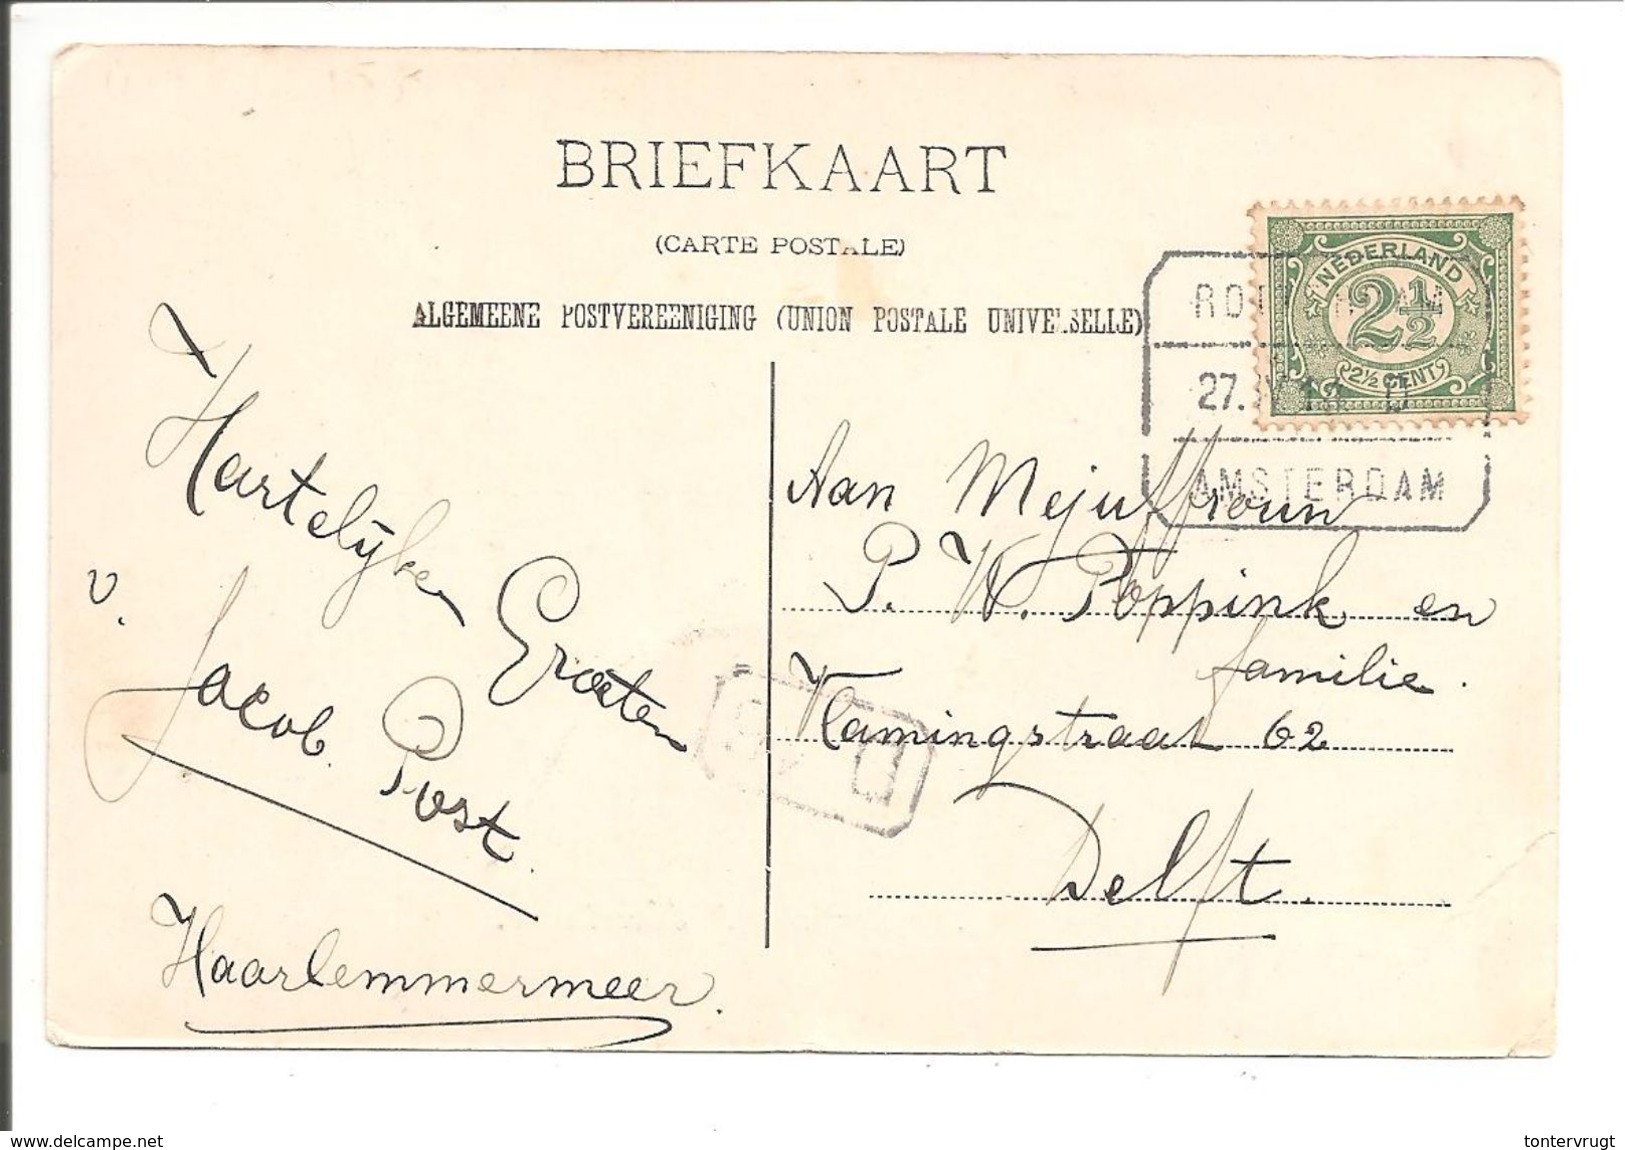 BRIEFKAART
(CARTE POSTALE)
ALGEMEENE POSTVEREENIGING (UNION POSTALE UNIVERSELLE)
NEDERLAND
2½
2½ CENT
27.
AMSTERDAM
Hartelijken
Groeten
v.
Jacob Post.
Haarlemmermeer.
Aan Mejuffrouw
P. W. Poppink en
familie.
Vlamingstraat 62
Delft.
www.delcampe.net
tontervrugt